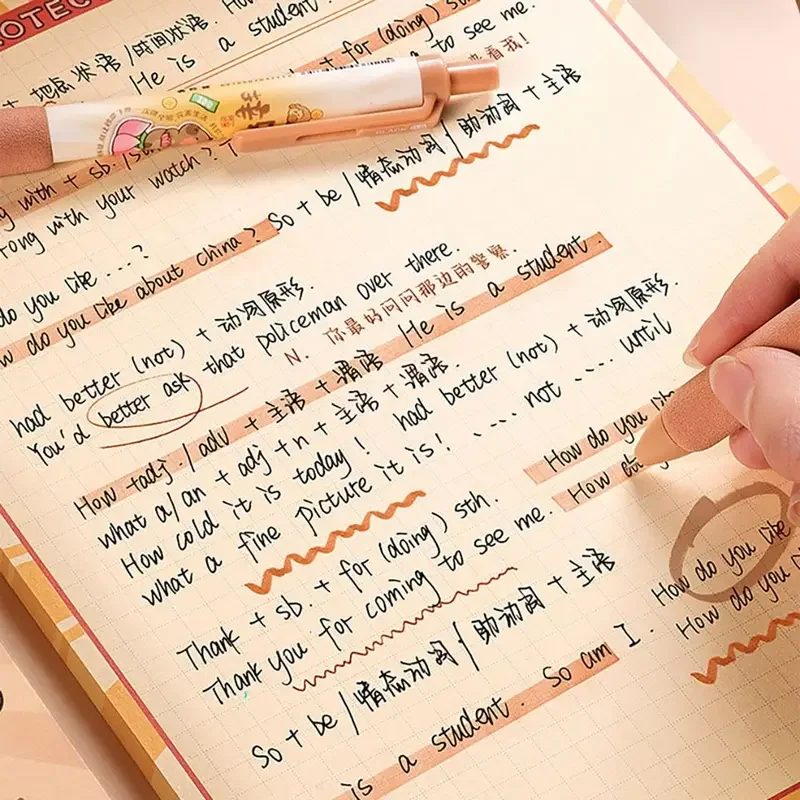 OTEC
地点状语/时间状语. How
He is a student.
+ for (doing) sth.
to see me.
来看我!
ng with + sb. /s
rong with your watch?
So + be / 情态动词 / 助动词 + 主语
do you like ...?
w do you like about china?
had better (not) + 动词原形.
You'd better ask that policeman over there.
N. 你最好问问那边的警察.
How + adj. / adv + 主语 + 谓语 He is a student.
what a/an + adj + n + 主语 + 谓语.
had better (not) + 动词原形.
How cold it is today!
.... not .... until
what a fine picture it is!
How do you
How
Thank + sb. + for (doing) sth.
Thank you for coming to see me.
How do you like
How do you
So + be / 情态动词 / 助动词 + 主语
is a student. So am I.